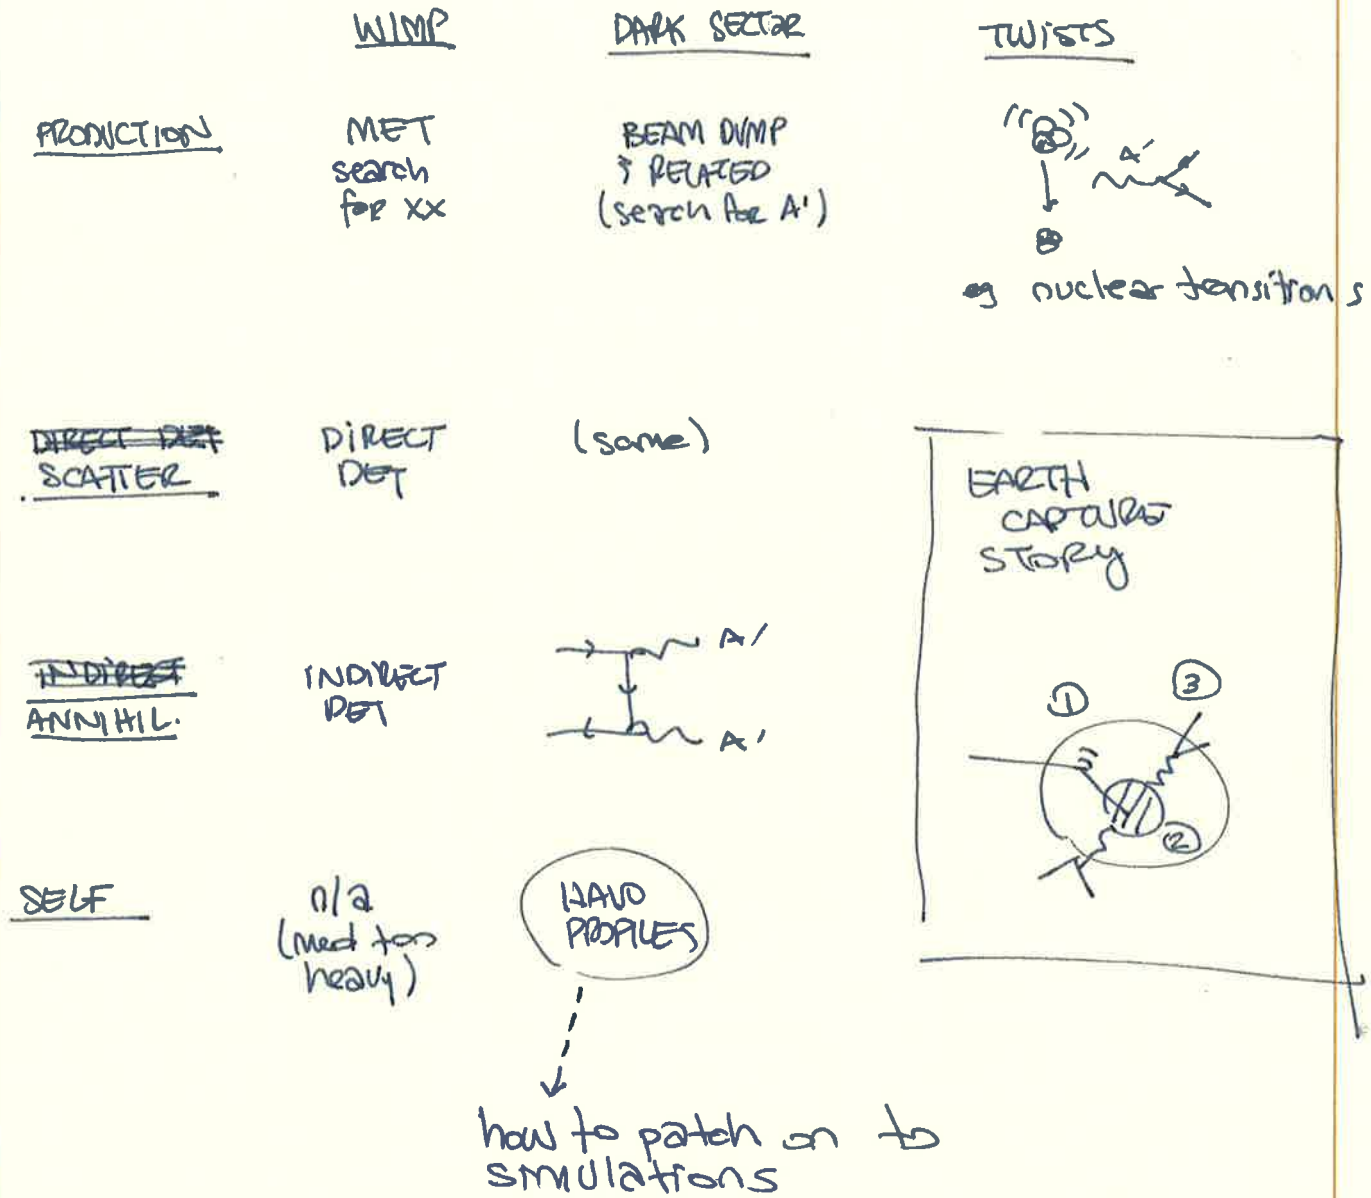 WIMP
DARK SECTOR
TWISTS
PRODUCTION
MET
search
for xx
BEAM DUMP
& RELATED
(search for A')
A'
eg nuclear transitions
DIRECT DET
SCATTER
DIRECT
DET
(same)
EARTH
CAPTURE
STORY
INDIRECT
ANNIHIL.
INDIRECT
DET
A'
A'
1
3
2
SELF
n/a
(med too
heavy)
HALO
PROFILES
how to patch on to
simulations